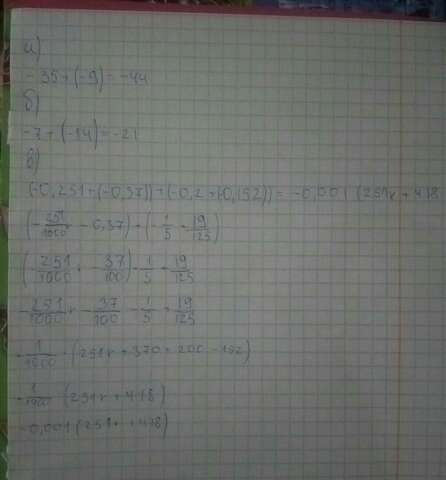 а)
-35+(-9)=-44
б)
-7+(-14)=-21
в)
(-0,251+(-0,37))+(-0,2+(0,152))=-0,001(251r+418
(-251/1000-0,37)+(-1/5+19/125)
(-251/1000r-37/100)-1/5+19/125
-251/1000r-37/100-1/5+19/125
-1/1000·(251r+370+200-152)
-1/1000·(251r+418)
-0,001(251r+418)